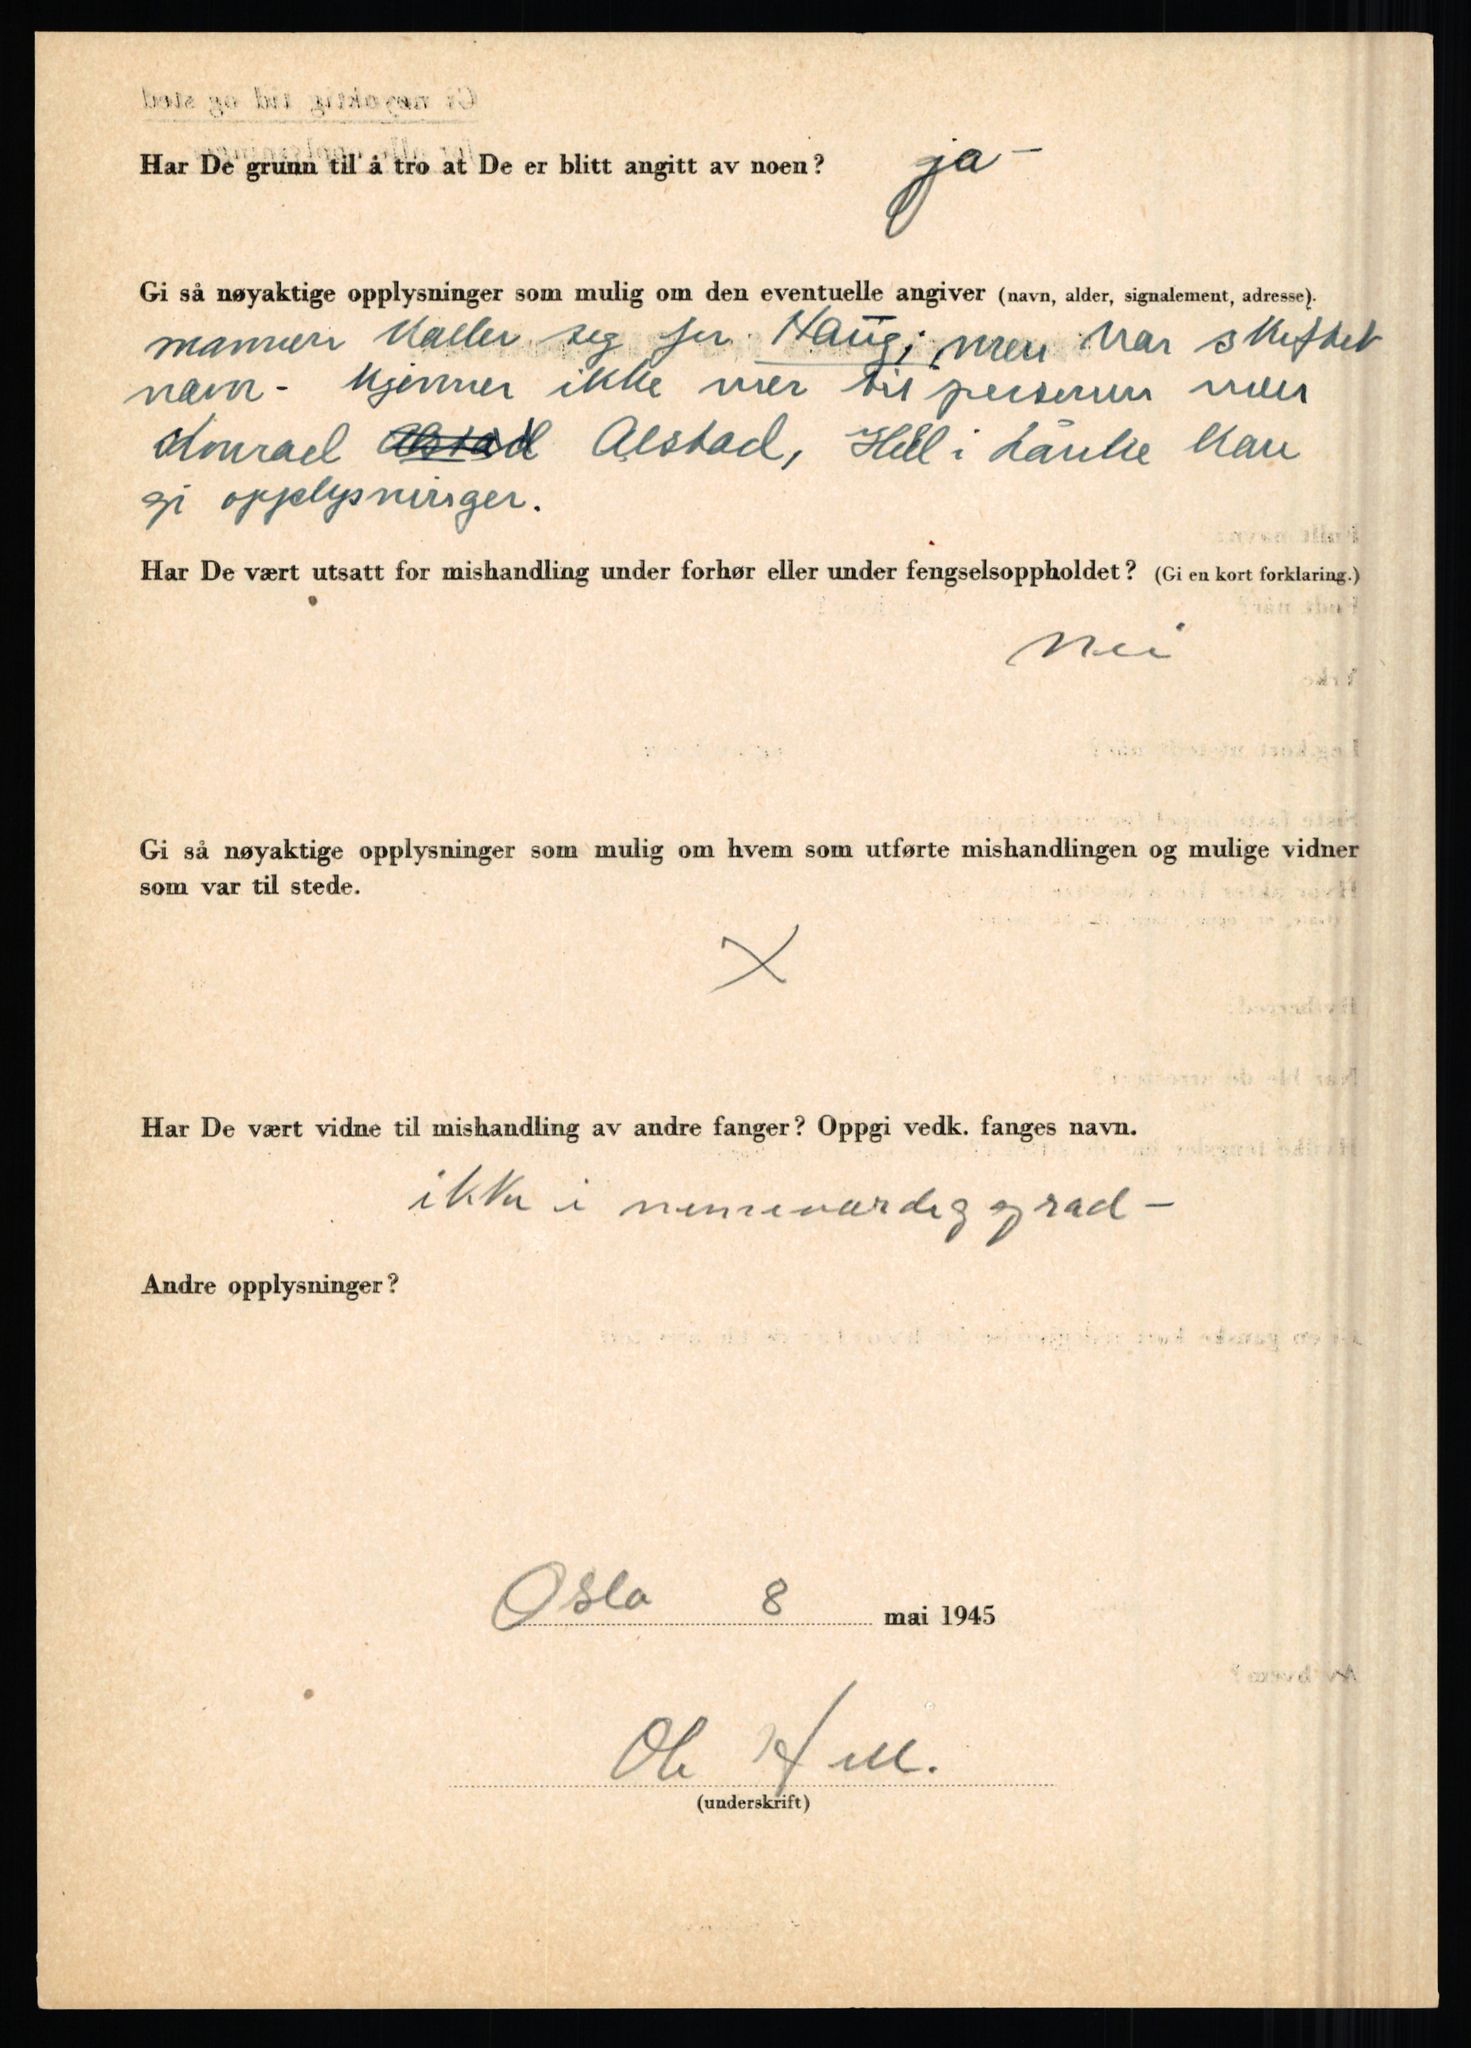 Har De grunn til å tro at De er blitt angitt av noen? ja —
Gi så nøyaktige opplysninger som mulig om den eventuelle angiver (navn, alder, signalement, adresse).
mannen kaller seg for Haug; men har skiftet
navn - kjenner ikke mer til personen men
Konrad Alstad Alstad, Hell i Lånke kan
gi opplysninger.
Har De vært utsatt for mishandling under forhør eller under fengselsoppholdet? (Gi en kort forklaring.)
Nei
Gi så nøyaktige opplysninger som mulig om hvem som utførte mishandlingen og mulige vidner
som var til stede.
X
Har De vært vidne til mishandling av andre fanger? Oppgi vedk. fanges navn.
ikke i nevneverdig grad —
Andre opplysninger?
Oslo 8 mai 1945
Ole Hell.
(underskrift)